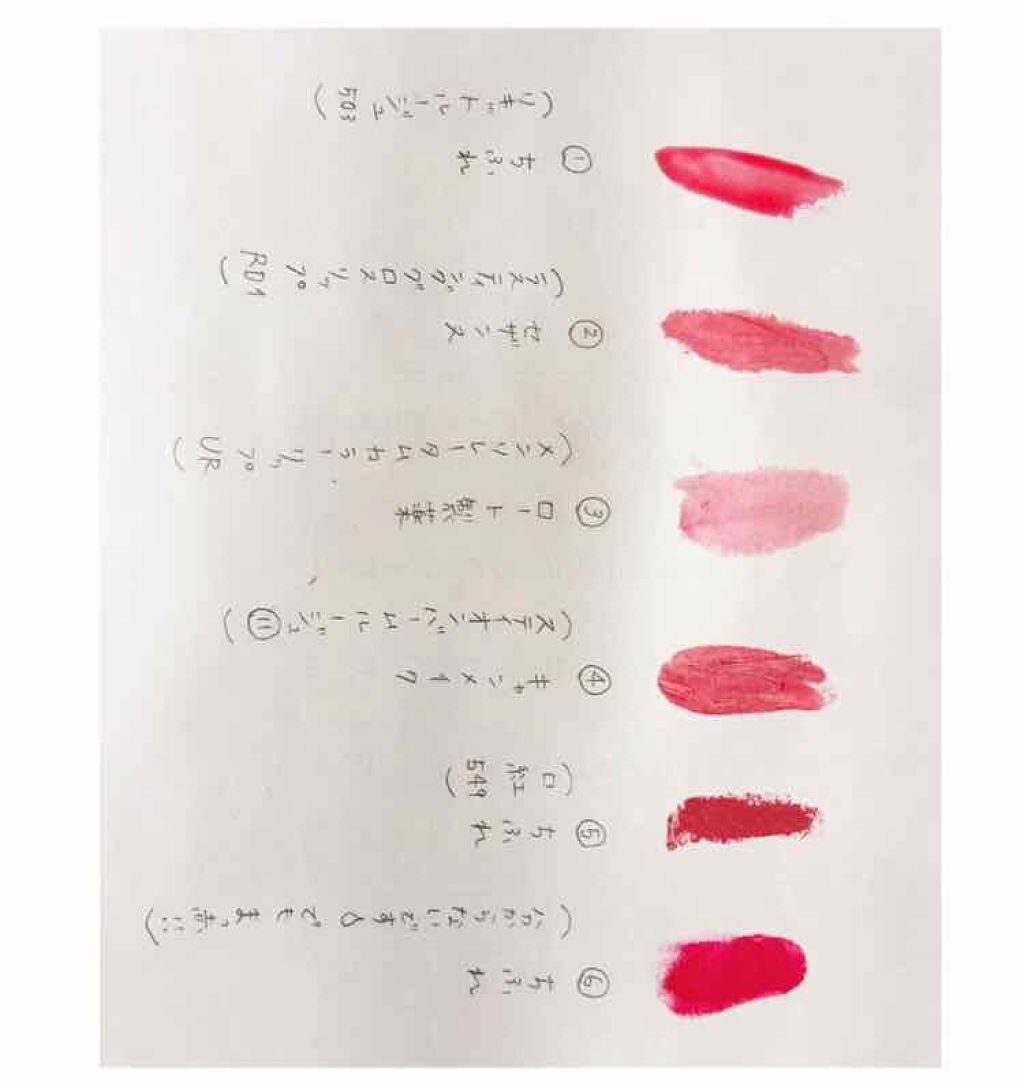 ① ちふれ
(リキッドルージュ 503)
② セザンヌ
(ラスティンググロスリップ RD1)
③ ロート製薬
(メンソレータムカラーリップ UR)
④ キャンメイク
(ステイオンバームルージュ ⑪)
⑤ ちふれ
(口紅 549)
⑥ ちふれ
(分からないです。でもまっ赤!!)